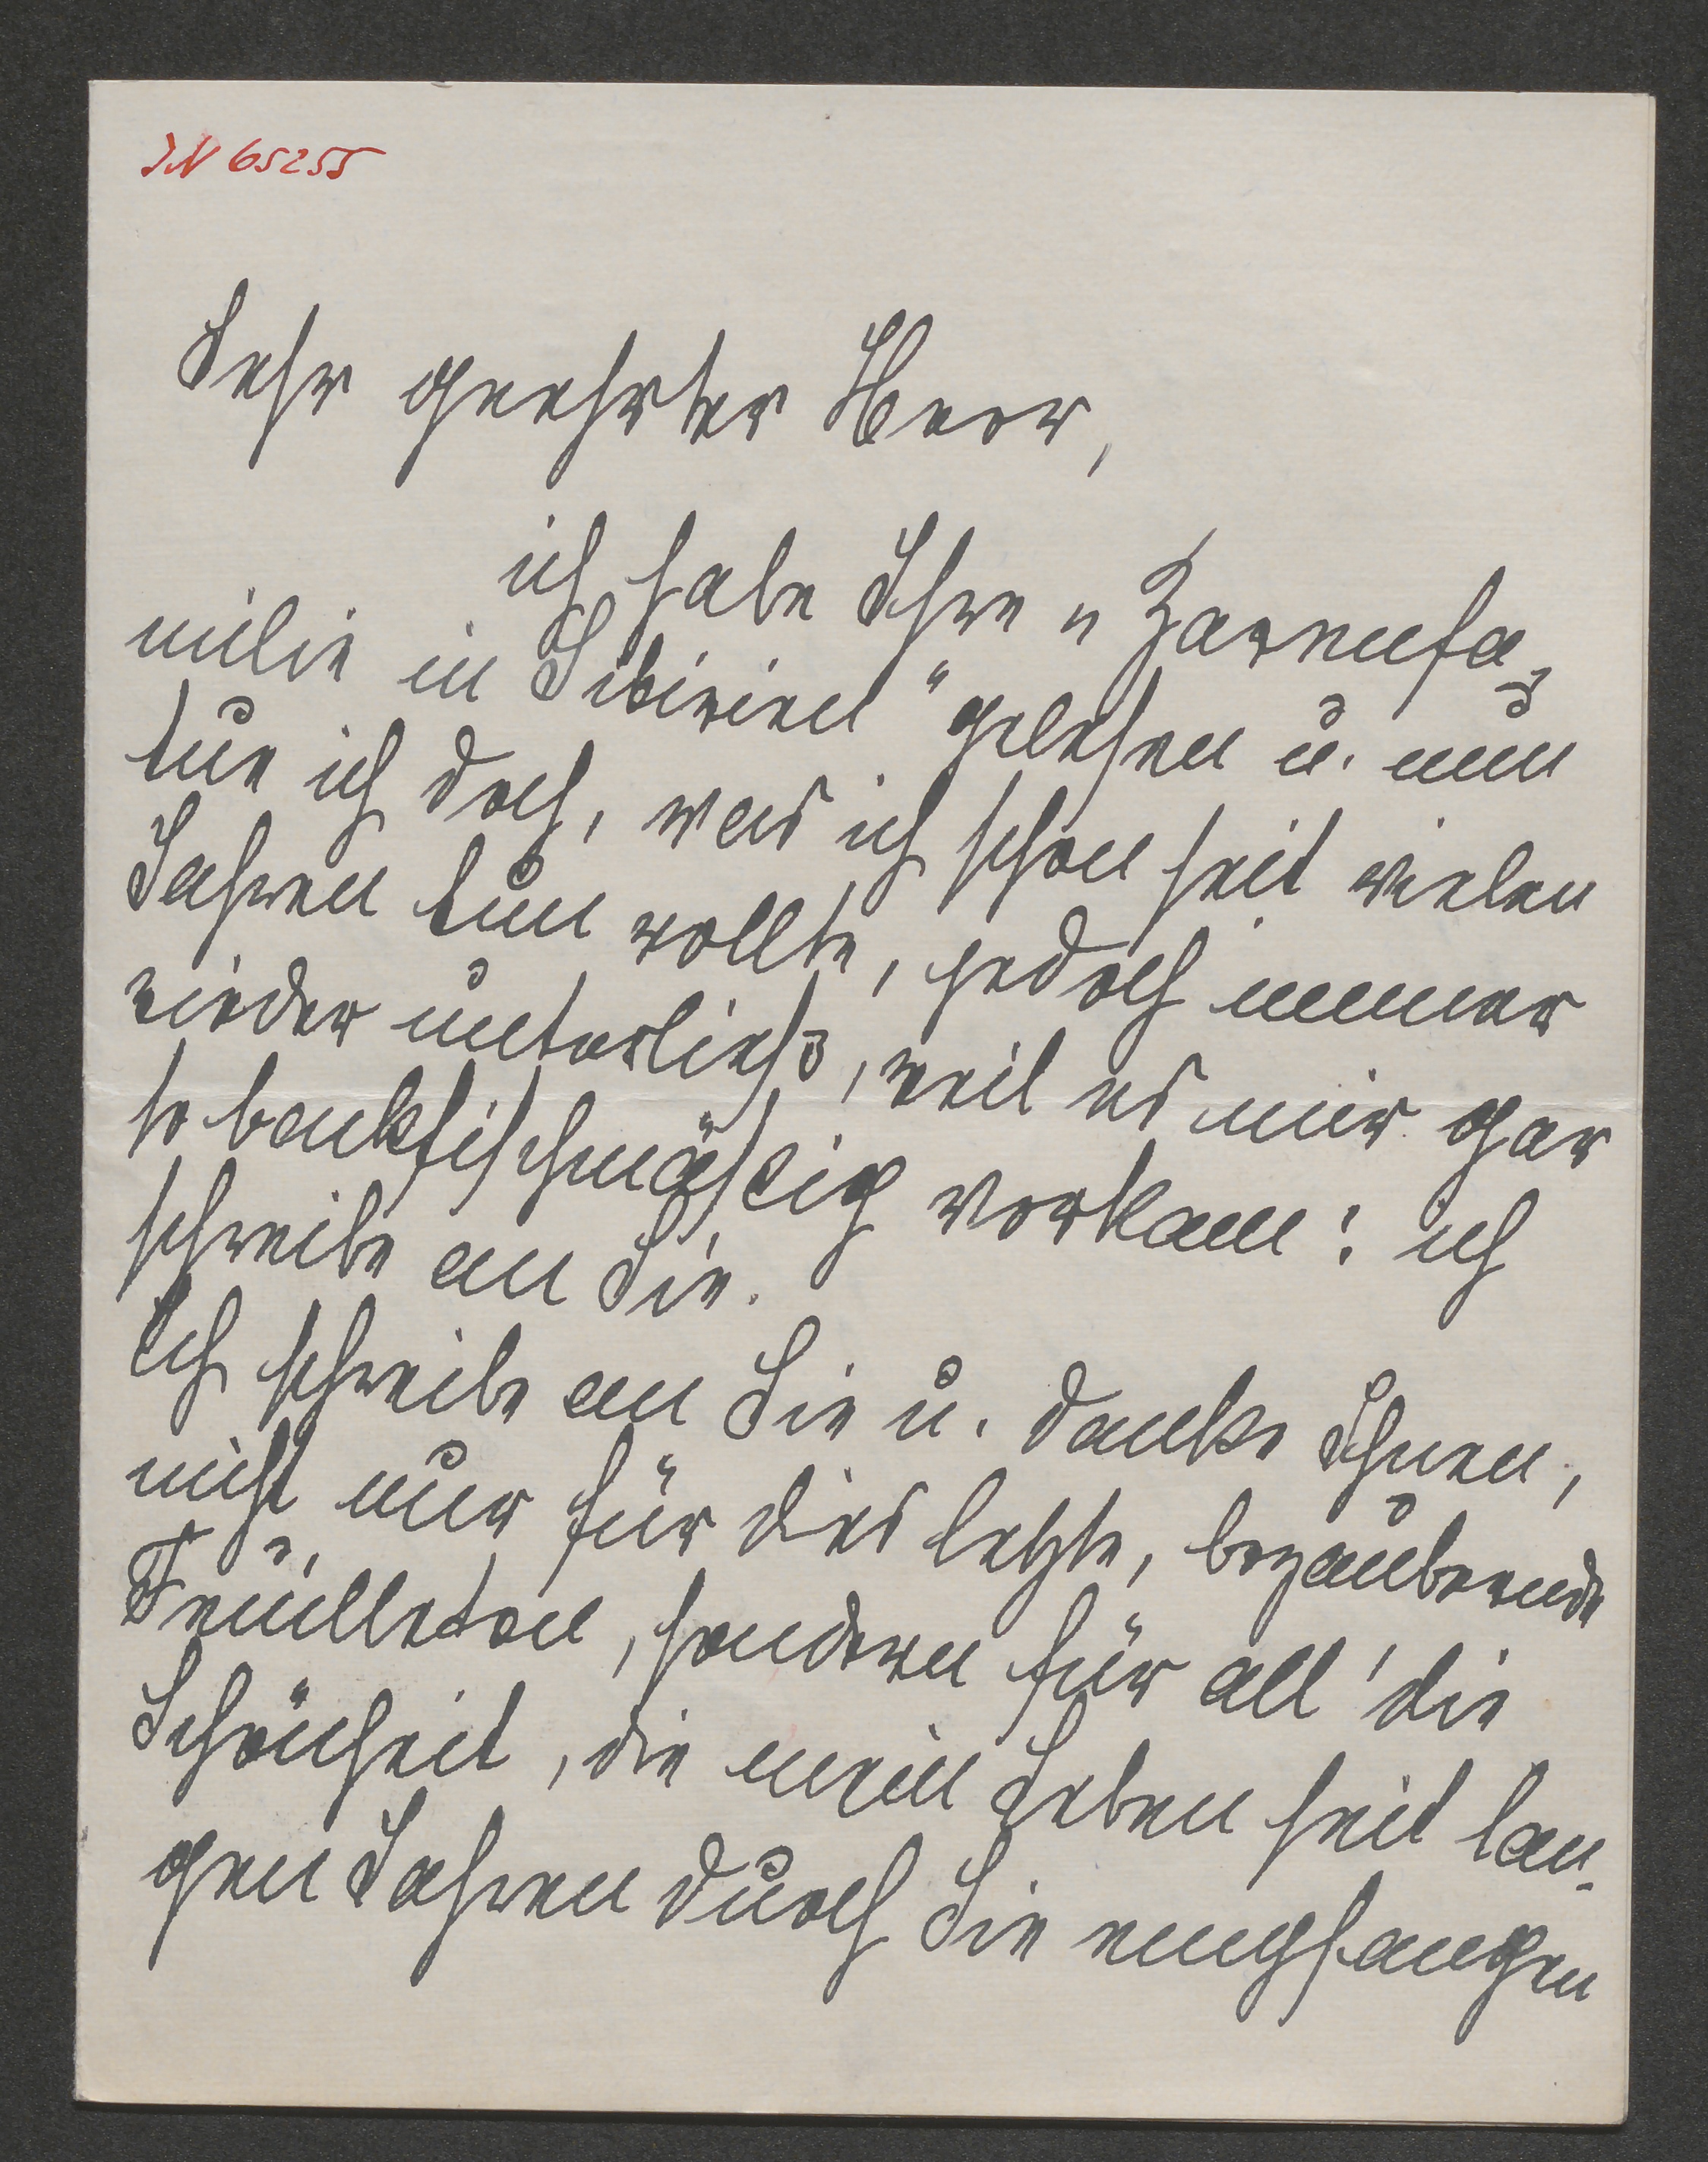 JN 65255
Sehr geehrter Herr,
ich habe Ihre „Zarenfa-
milie in Sibirien“ gelesen u. nun
tue ich doch, was ich schon seit vielen
Jahren tun wollte, jedoch immer
wieder unterließ, weil es mir gar
so backfischmässig vorkam: ich
schreibe an Sie.
Ich schreibe an Sie u. danke Ihnen,
nicht nur für dies letzte, bezaubernde
Feuilleton, sondern für all' die
Schönheit, die mein Leben seit lan-
gen Jahren durch Sie empfangen